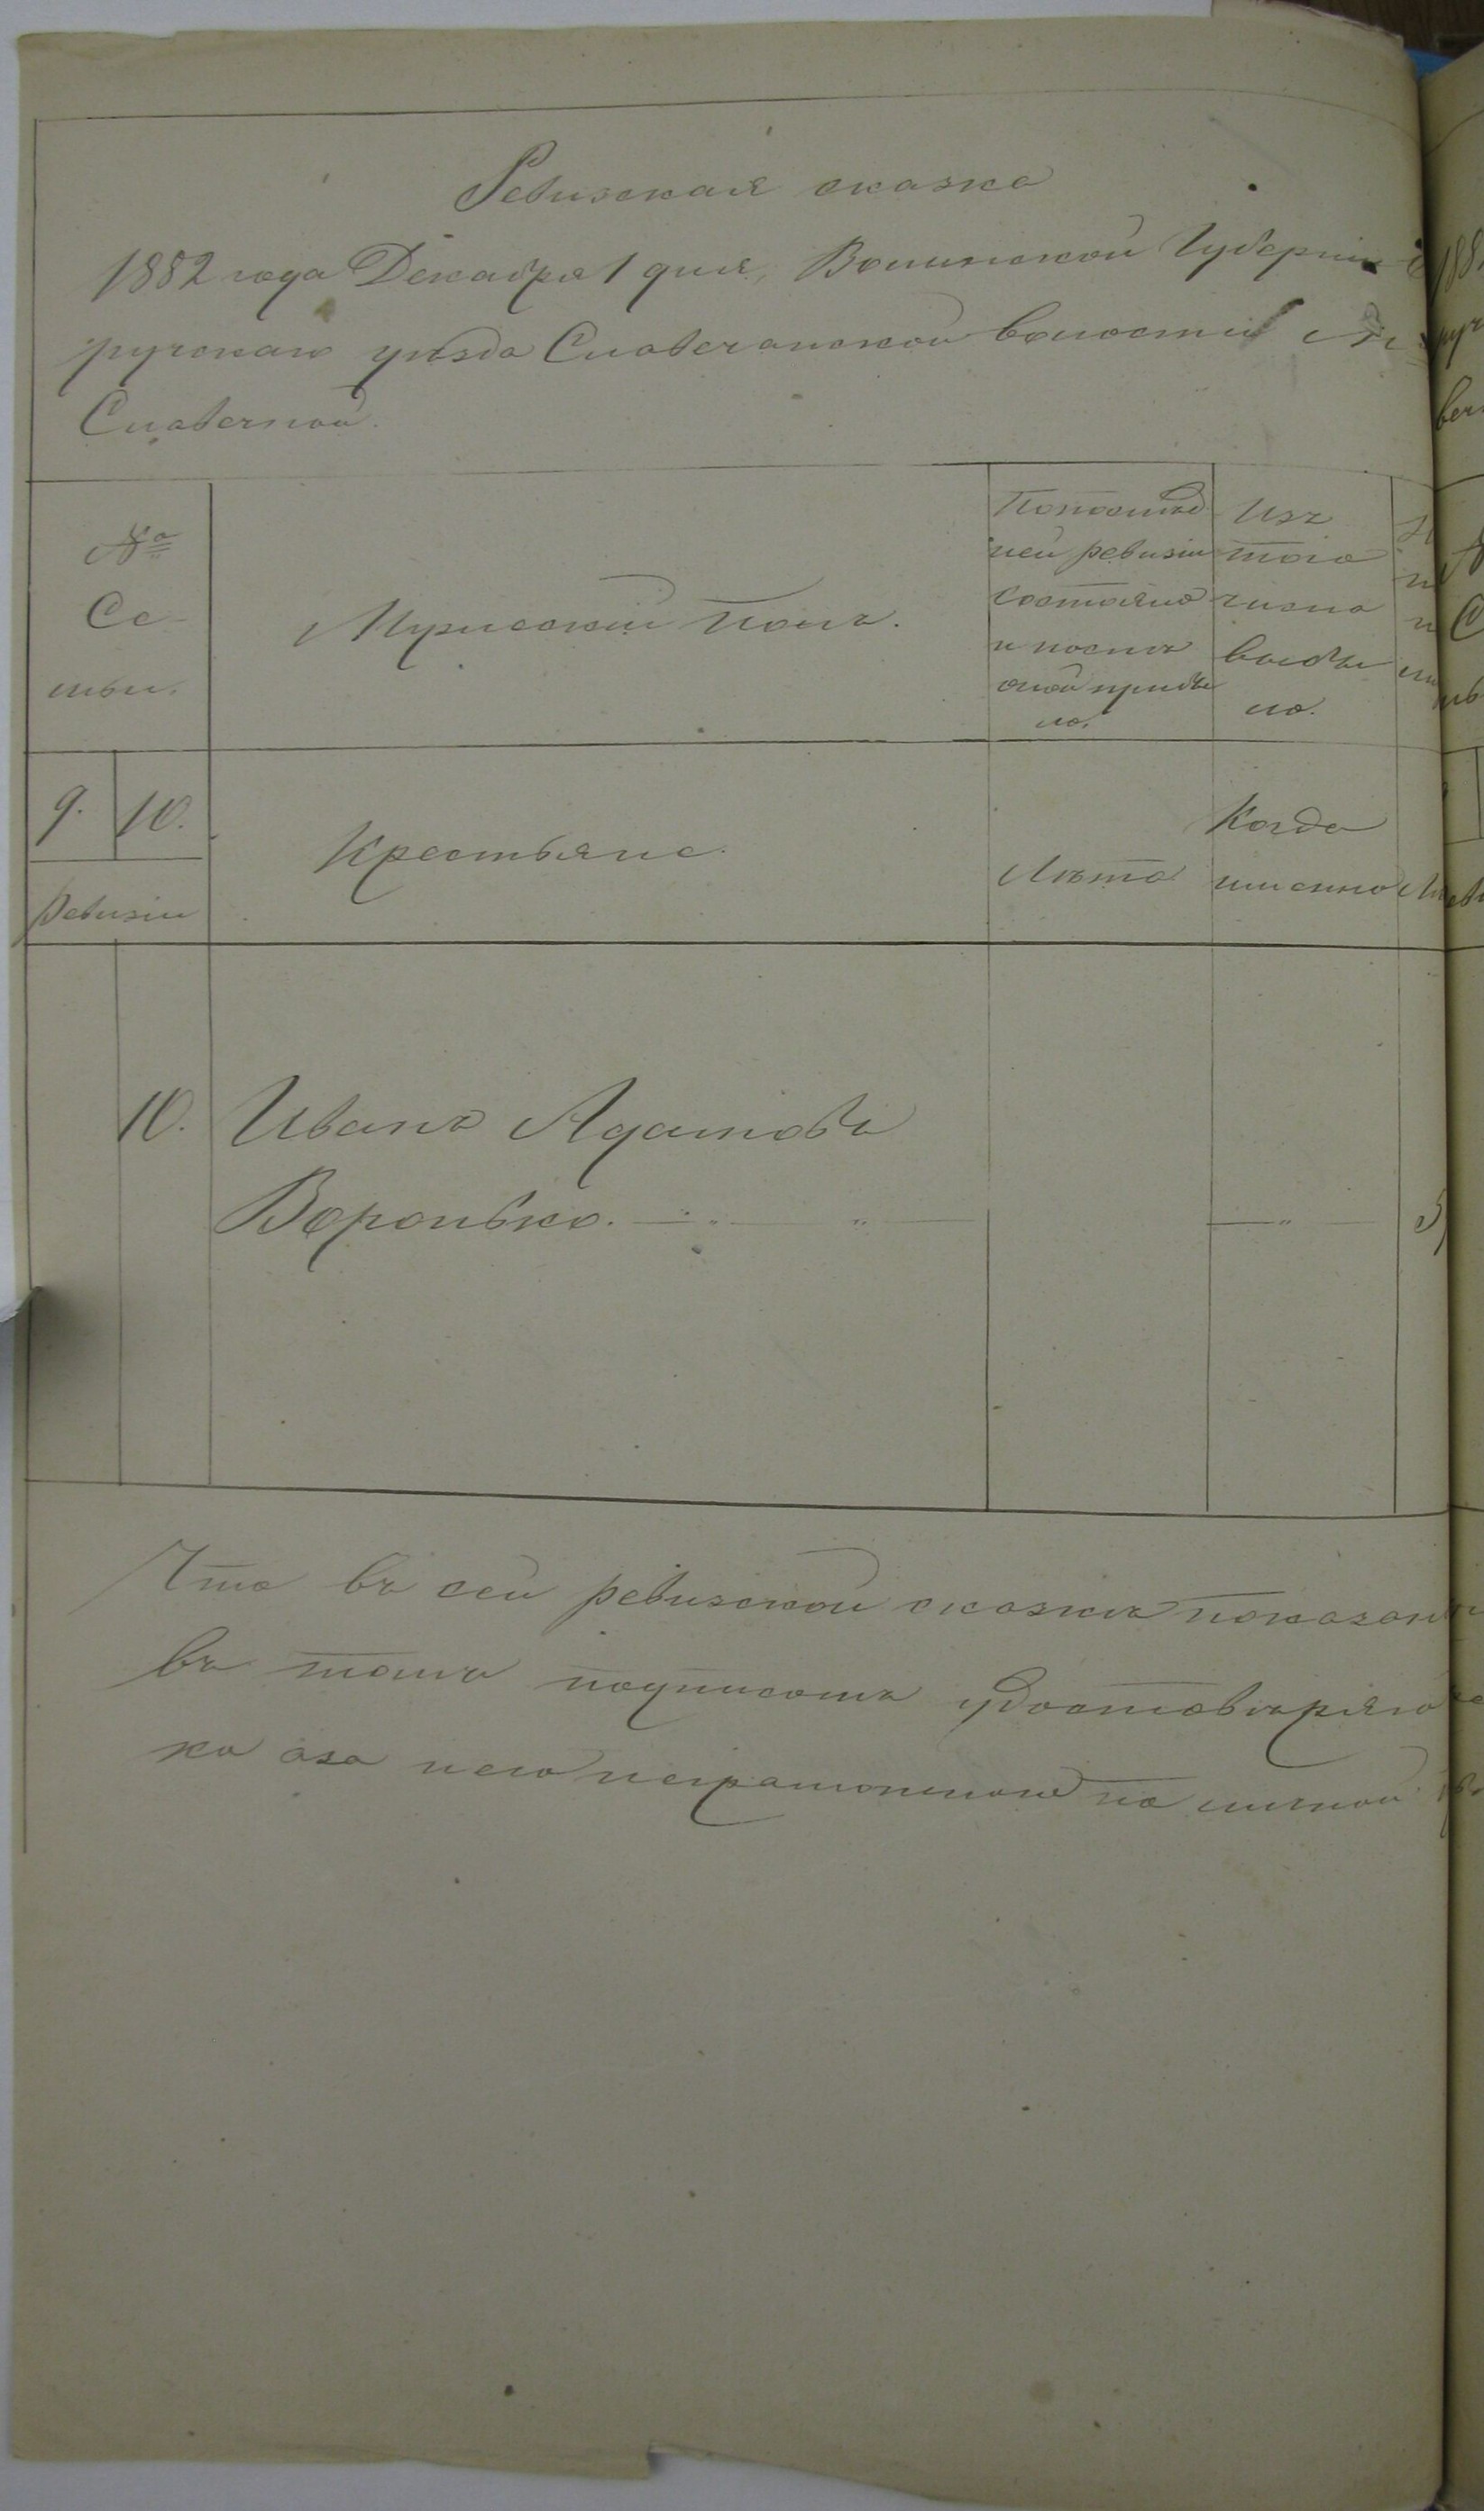 Ревизская сказка
1882 года Декабря 1 дня, Волынской Губернии
ручскаго уѣзда Словечанской волости
Словечной.
№
Се-
мьи.
Мужескій полъ.
По послѣд
ней ревизіи
состояло
и послѣ
оной прибы
ло.
Изъ
того
числа
выбы
ло.
9. 10.
ревизіи
Крестьяне.
Лѣта
Когда
именно
10. Иванъ Адамовъ
Воронько.
Что въ сей ревизской сказкѣ показан
въ томъ подписомъ удостовѣряю
ко аза него неграмотного по личной